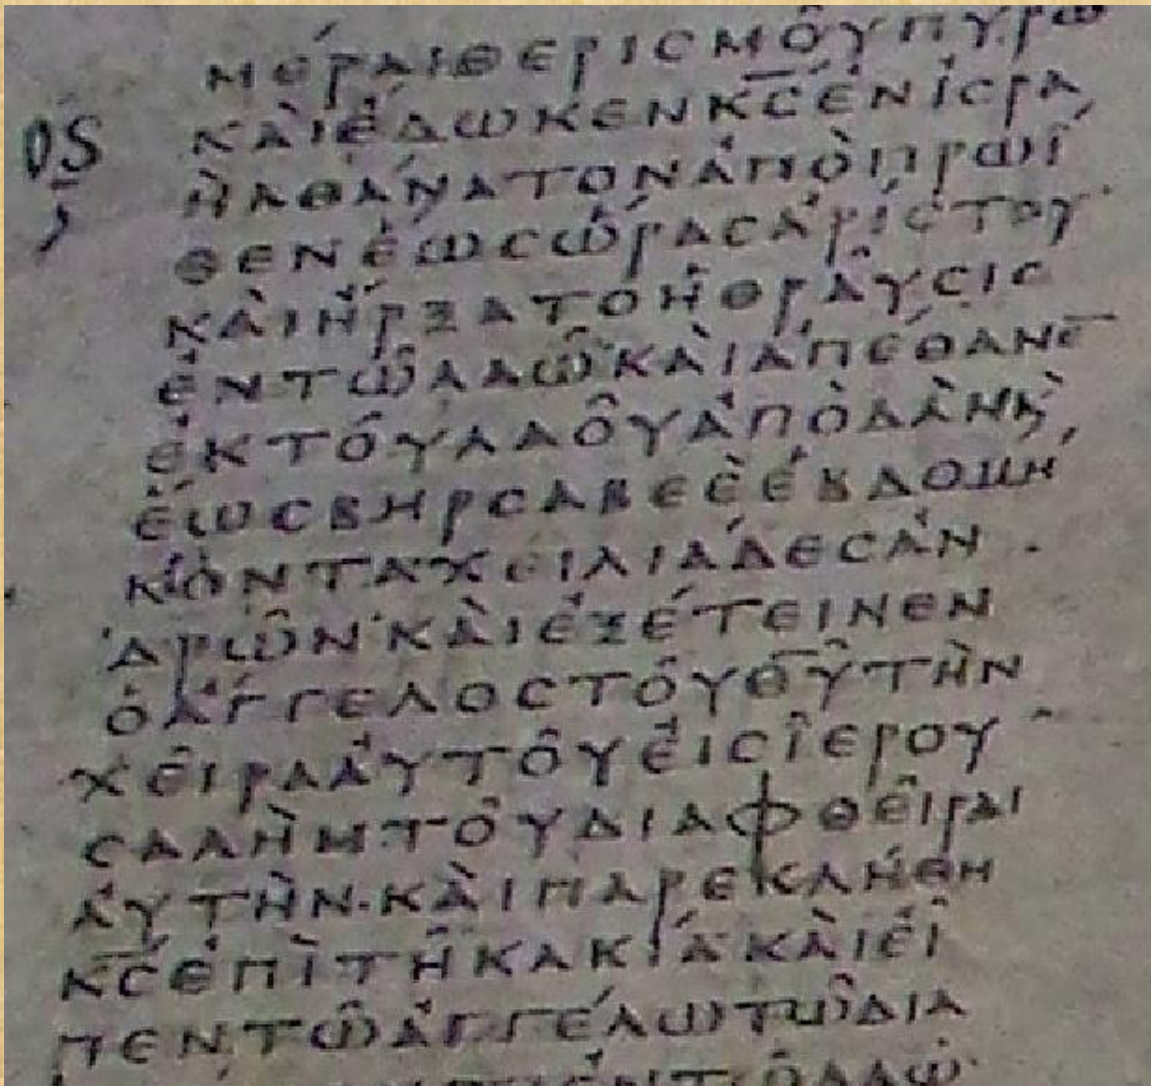 ΜΕΡΑΙΘΕΡΙϹΜΟΥΠΥΡΩ
ΚΑΙΕΔΩΚΕΝΚ̅Ϲ̅ΕΝΙϹΡΑ
ΗΛΘΑΝΑΤΟΝΑΠΟΠΡΩΙ
ΘΕΝΕΩϹΩΡΑϹΑΡΙϹΤΟΥ
ΚΑΙΗΡΞΑΤΟΗΘΡΑΥϹΙϹ
ΕΝΤΩΛΑΩΚΑΙΑΠΕΘΑΝΕ̅
ΕΚΤΟΥΛΑΟΥΑΠΟΔΑΝΚ
ΕΩϹΒΗΡϹΑΒΕΕΕΒΔΟΜΗ
ΚΟΝΤΑΧΕΙΛΙΑΔΕϹΑΝ
ΔΡΩΝ·ΚΑΙΕΞΕΤΕΙΝΕΝ
ΟΑΓΓΕΛΟϹΤΟΥΘ̅Υ̅ΤΗΝ
ΧΕΙΡΑΑΥΤΟΥΕΙϹΙΕΡΟΥ
ϹΑΛΗΜΤΟΥΔΙΑΦΘΕΙΡΑΙ
ΑΥΤΗΝ·ΚΑΙΠΑΡΕΚΛΗΘΗ
Κ̅Ϲ̅ΕΠΙΤΗΚΑΚΙΑΚΑΙΕΙ
ΠΕΝΤΩΑΓΓΕΛΩΤΩΔΙΑ